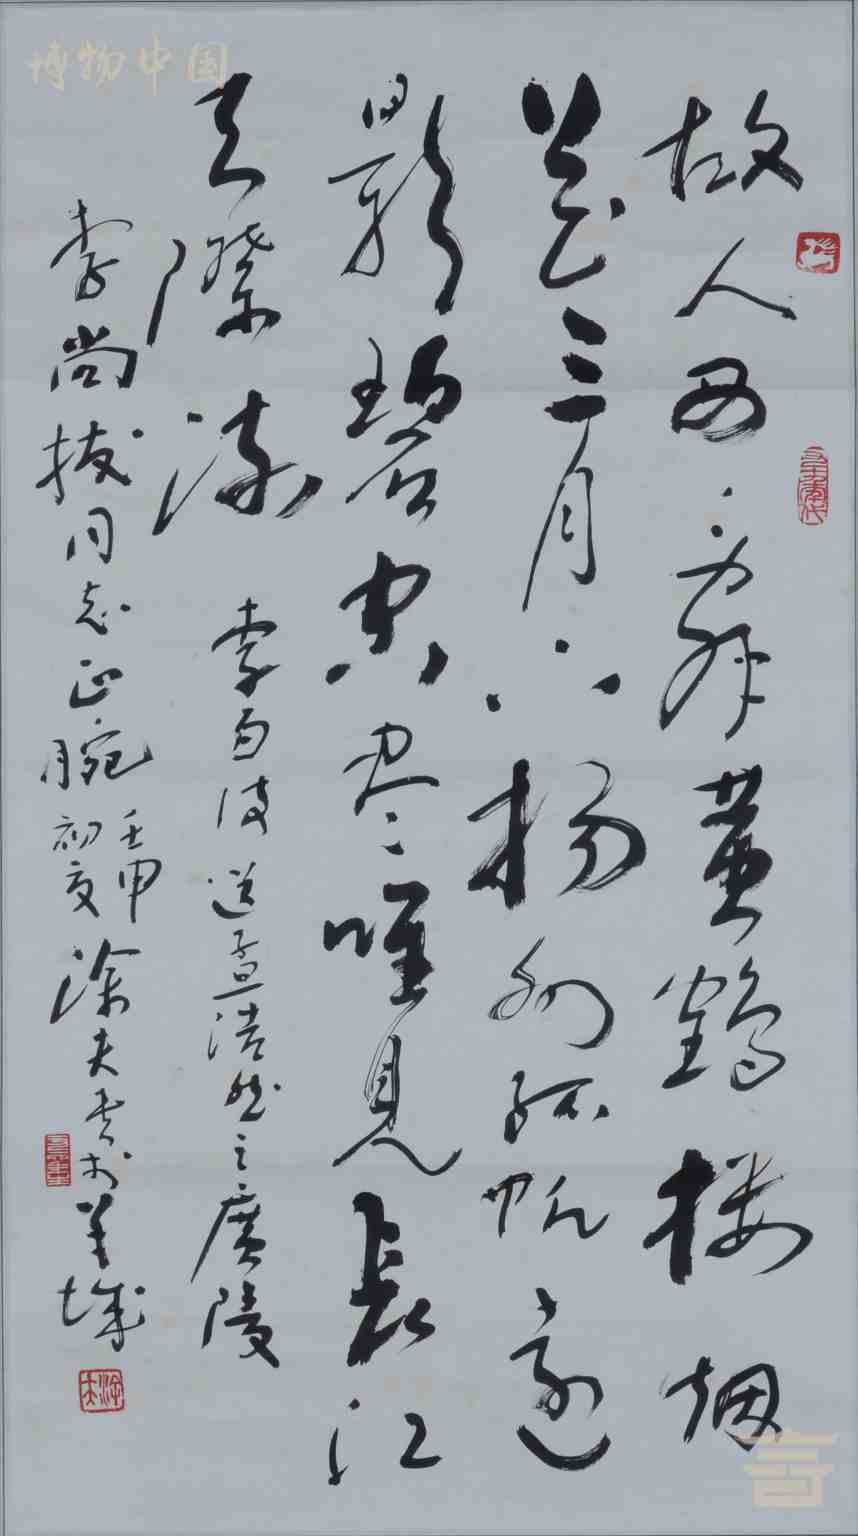 博物中国
故人西辞黄鹤楼烟
花三月下扬州孤帆遠
影碧空尽唯見長江
天際流 李白诗送孟浩然之廣陵
李尚拔同志正腕 壬申初夏 涂夫书於羊城